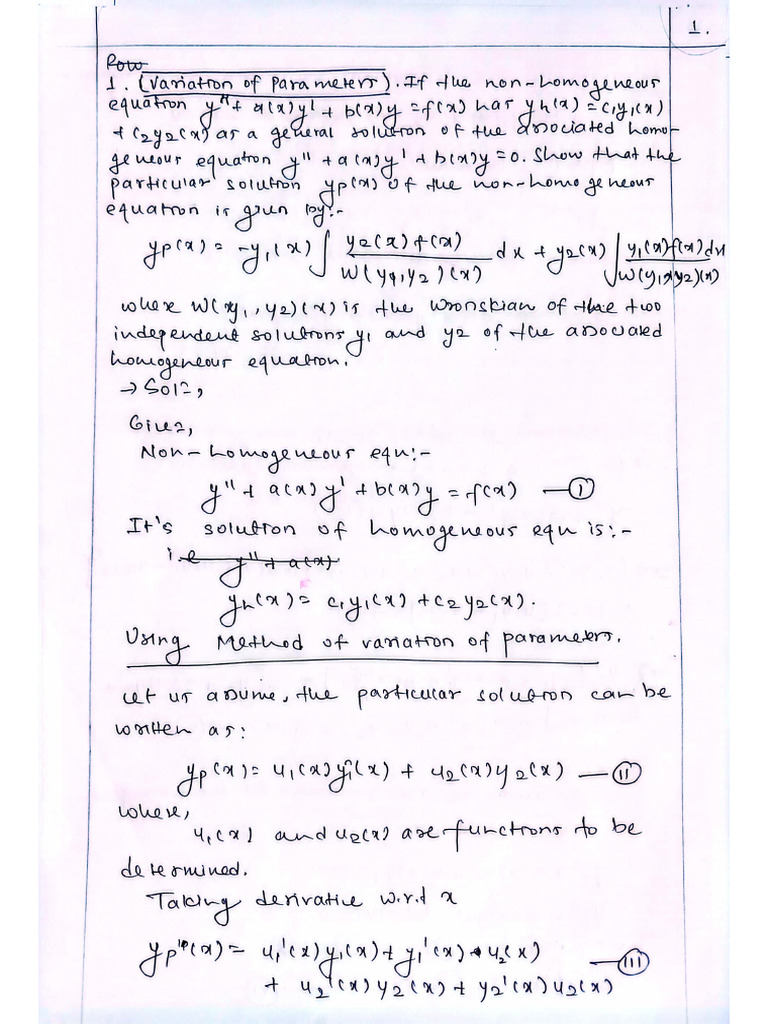 1.
Row
1. (Variation of Parameters). If the non-homogeneous
equation y" + a(x)y' + b(x)y = f(x) has yh(x) = c1y1(x)
+ c2y2(x) as a general solution of the associated homo-
geneous equation y" + a(x)y' + b(x)y = 0. Show that the
particular solution yp(x) of the non-homogeneous
equation is given by:-
yp(x) = -y1(x) ∫ y2(x) f(x) / W(y1,y2)(x) dx + y2(x) ∫ y1(x)f(x)dx / W(y1,y2)(x)
where W(y1,y2)(x) is the Wronskian of the two
independent solutions y1 and y2 of the associated
homogeneous equation.
→ Soln,
Given,
Non-homogeneous equ:-
y" + a(x)y' + b(x)y = f(x) — (I)
It's solution of homogeneous equ is:-
i.e y" + a(x)
yh(x) = c1y1(x) + c2y2(x).
Using Method of variation of parameters.
Let us assume, the particular solution can be
written as:
yp(x) = u1(x)y1(x) + u2(x)y2(x) — (II)
where,
u1(x) and u2(x) are functions to be
determined.
Taking derivative w.r.t x
yp'(x) = u1'(x)y1(x) + y1'(x) u2(x)
+ u2'(x)y2(x) + y2'(x)u2(x) — (III)